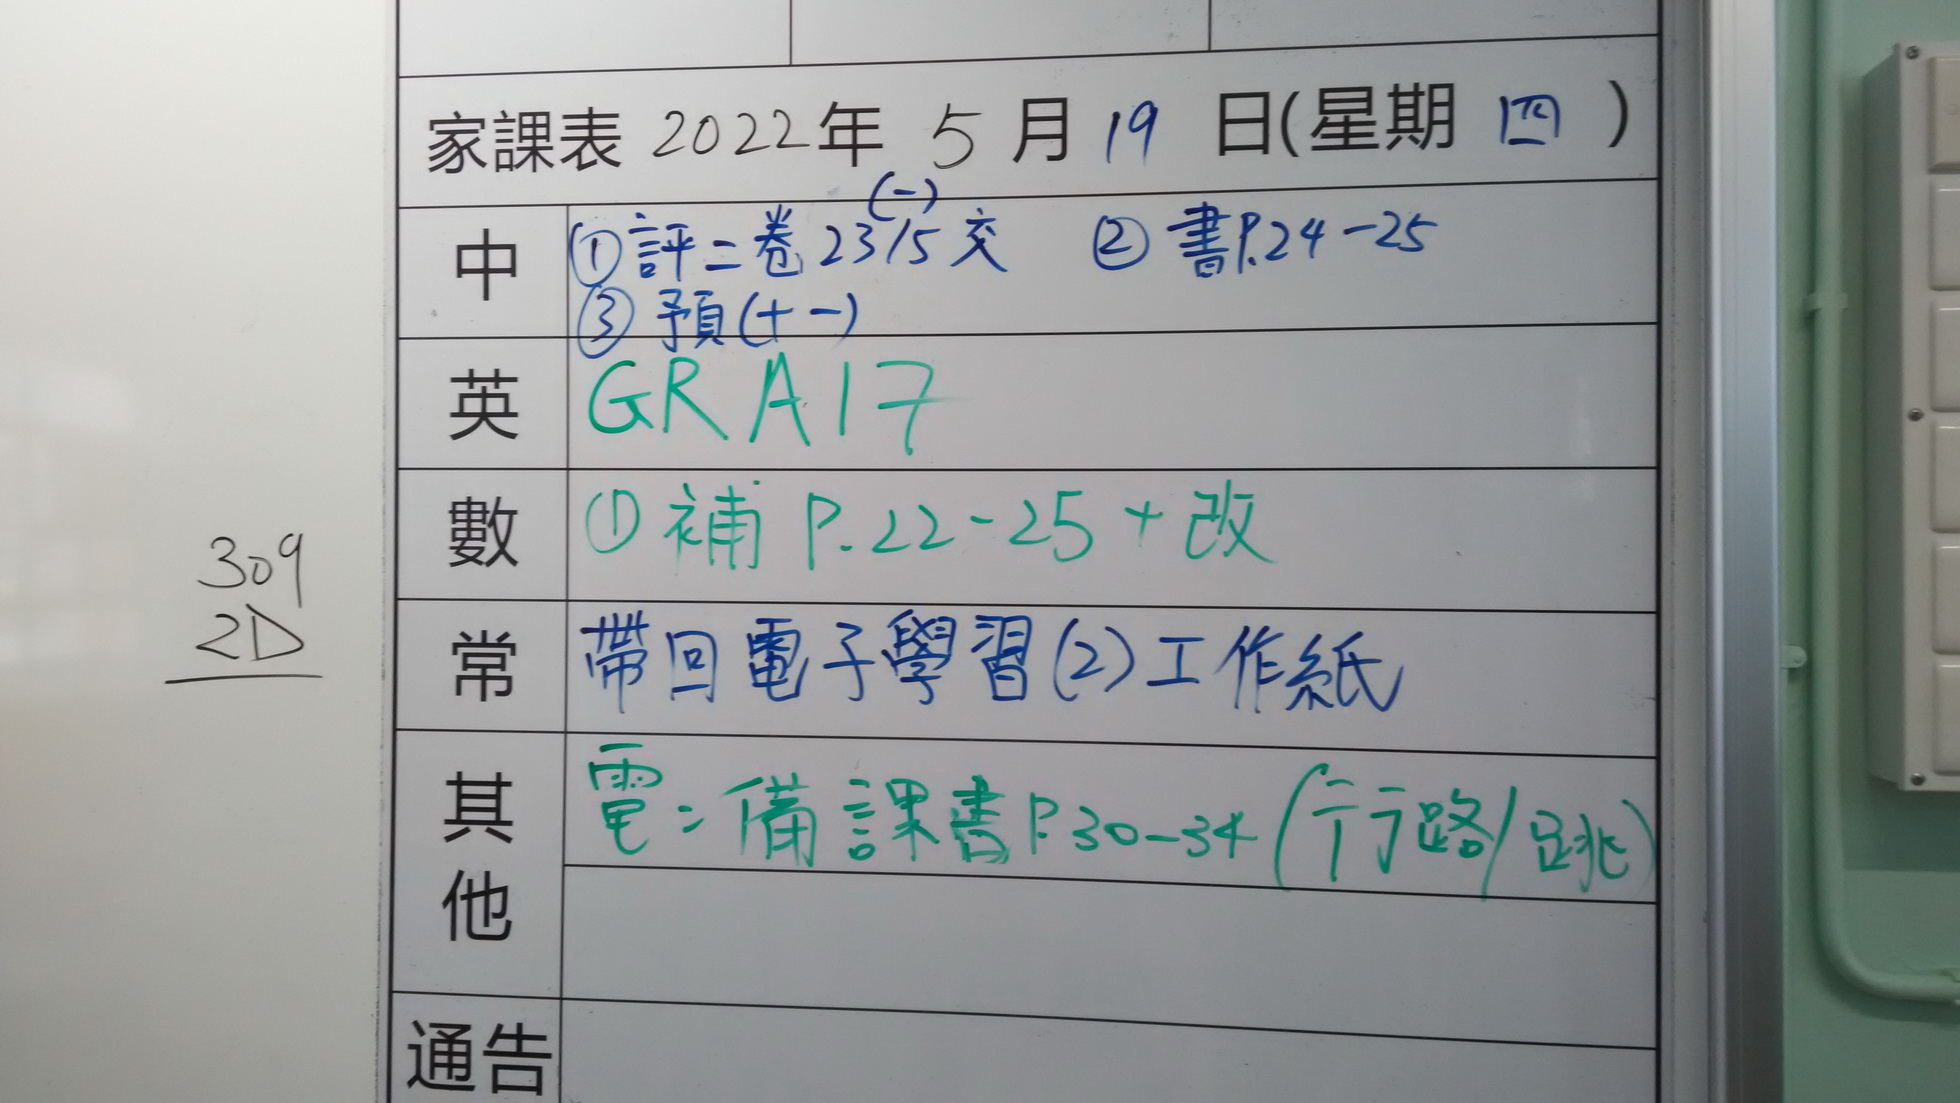 家課表 2022年 5 月 19 日(星期 四 )
中 ①評二卷 23/5(一)交 ②書P.24-25
③預(十一)
英 GR A17
數 ①補 P.22-25 + 改
常 帶回電子學習(2)工作紙
其他 電：備課書P.30-34(行路/跳)
通告
309
2D